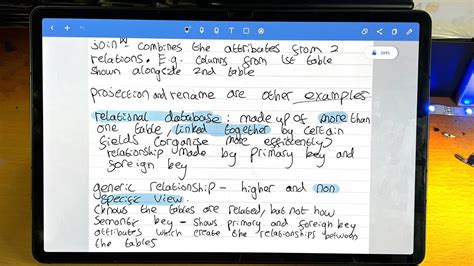 join - combines the attributes from 2
relations. E.g. columns from 1st table
shown alongside 2nd table
projection and rename are other examples
relational database: made up of more than
one table, linked together by certain
fields (organise more efficiently)
relationship made by primary key and
foreign key
generic relationship - higher and non
specific view.
(knows the tables are related, but not how
semantic key - shows primary and foreign key
attributes which create the relationships between
the tables